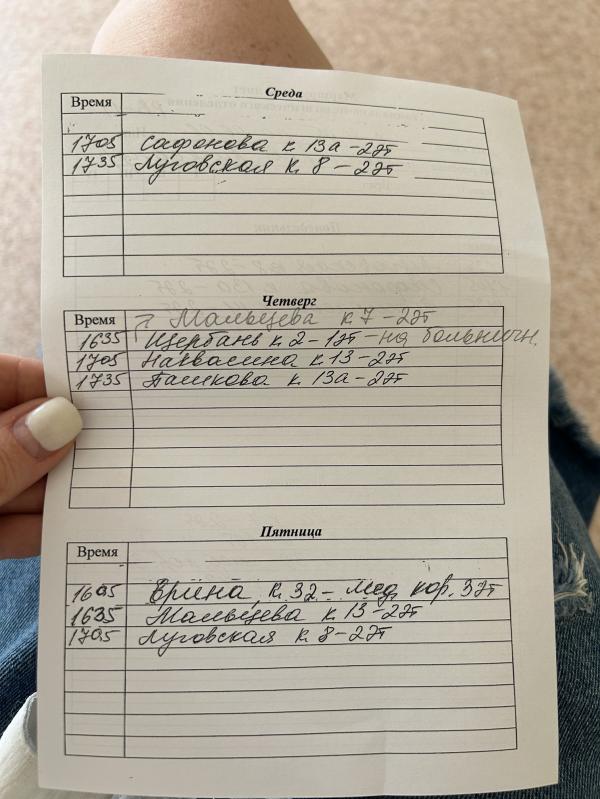 Среда
Время
1705 Сафонова к 13а - 2эт
1735 Луговская к 8 - 2эт
Четверг
Время Мальцева к 7 - 2эт
1635 Щербань к. 2 - 1эт - на больничн.
1705 к. 13 - 2эт
1735 к. 13а - 2эт
Пятница
Время
1605 к. 32 - мед. кор. 3эт
1635 Мальцева к 13 - 2эт
1705 Луговская к 8 - 2эт